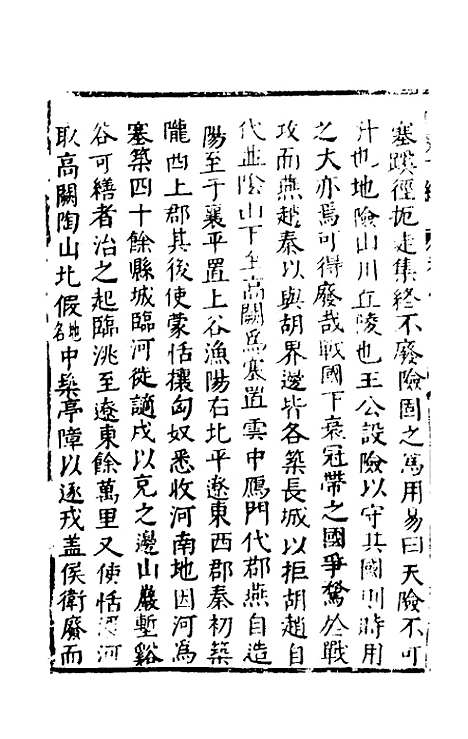 塞蹊徑扼走集終不廢險固之爲用易曰天險不可
升也地險山川丘陵也王公設險以守其國則時用
之大亦焉可得廢哉戰國下衰冠帶之國爭騖於戰
攻而燕趙秦以與胡界邊皆各築長城以拒胡趙自
代並陰山下至高闕爲塞置雲中鴈門代郡燕自造
陽至于襄平置上谷漁陽右北平遼東西郡秦初築
隴西上郡其後使蒙恬攘匈奴悉收河南地因河爲
塞築四十餘縣城臨河徙謫戍以充之邊山巖塹谿
谷可繕者治之起臨洮至遼東餘萬里又使恬渡河
取高闕陶山北假地名中築亭障以逐戎蓋侯衛廢而